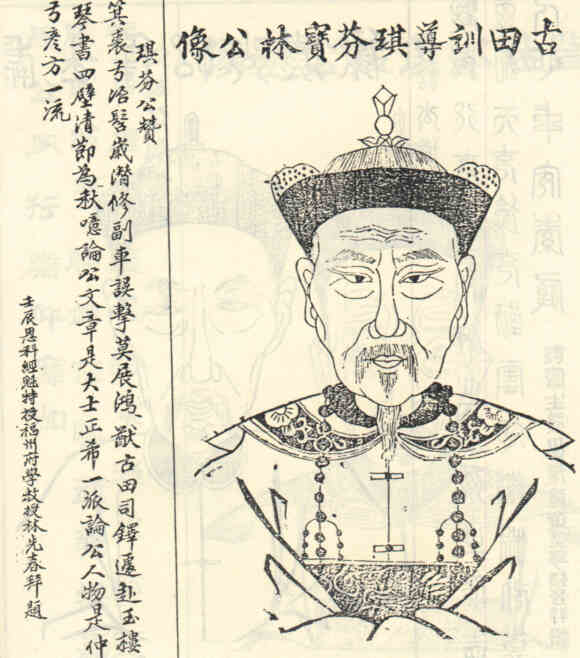 古田訓導琪芬寶林公像
琪芬公贊
箕裘弓冶髫歲潛修副車誤擊莫展鴻猷古田司鐸遽赴玉樓
琴書四壁清節為秋噫論公文章是大士正希一派論公人物是仲
弓彥方一流
壬辰恩科經魁特授福州府學教授林先春拜題